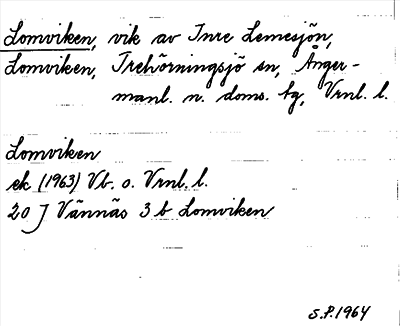 Lomviken, vik av Inre Lemesjön,
Lomviken, Trehörningsjö sn, Ånger-
manl. n. doms. tg, Vrnl. l.
Lomviken
ek (1963) Vb. o. Vrnl. l.
20 J Vännäs 3 b Lomviken
S.P. 1964